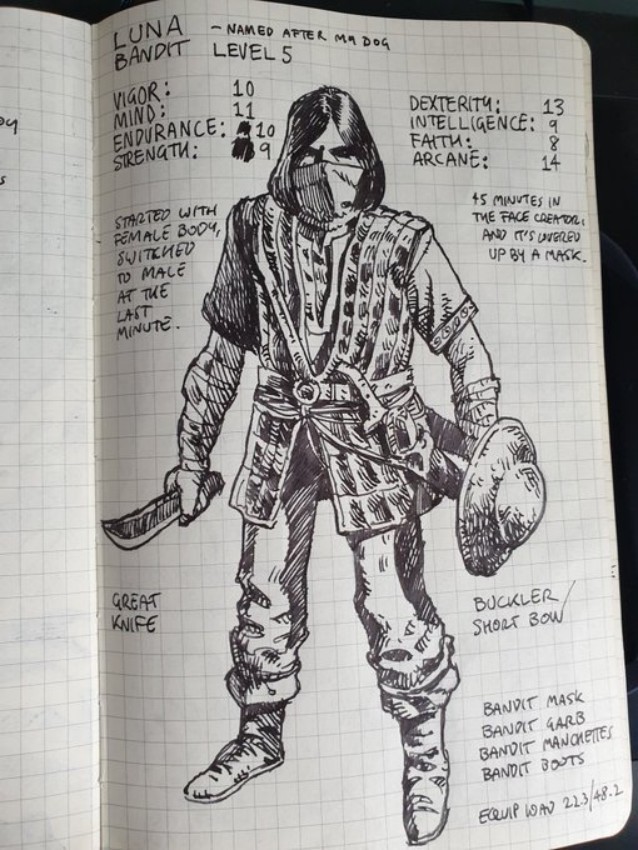 LUNA - NAMED AFTER MY DOG
BANDIT LEVEL 5
VIGOR: 10
MIND: 11
ENDURANCE: 10
STRENGTH: 9
DEXTERITY: 13
INTELLIGENCE: 9
FAITH: 8
ARCANE: 14
STARTED WITH
FEMALE BODY,
SWITCHED
TO MALE
AT THE
LAST
MINUTE.
45 MINUTES IN
THE FACE CREATOR,
AND IT'S COVERED
UP BY A MASK.
GREAT
KNIFE
BUCKLER/
SHORT BOW
BANDIT MASK
BANDIT GARB
BANDIT MANCHETTES
BANDIT BOOTS
EQUIP LOAD 22.3/48.2